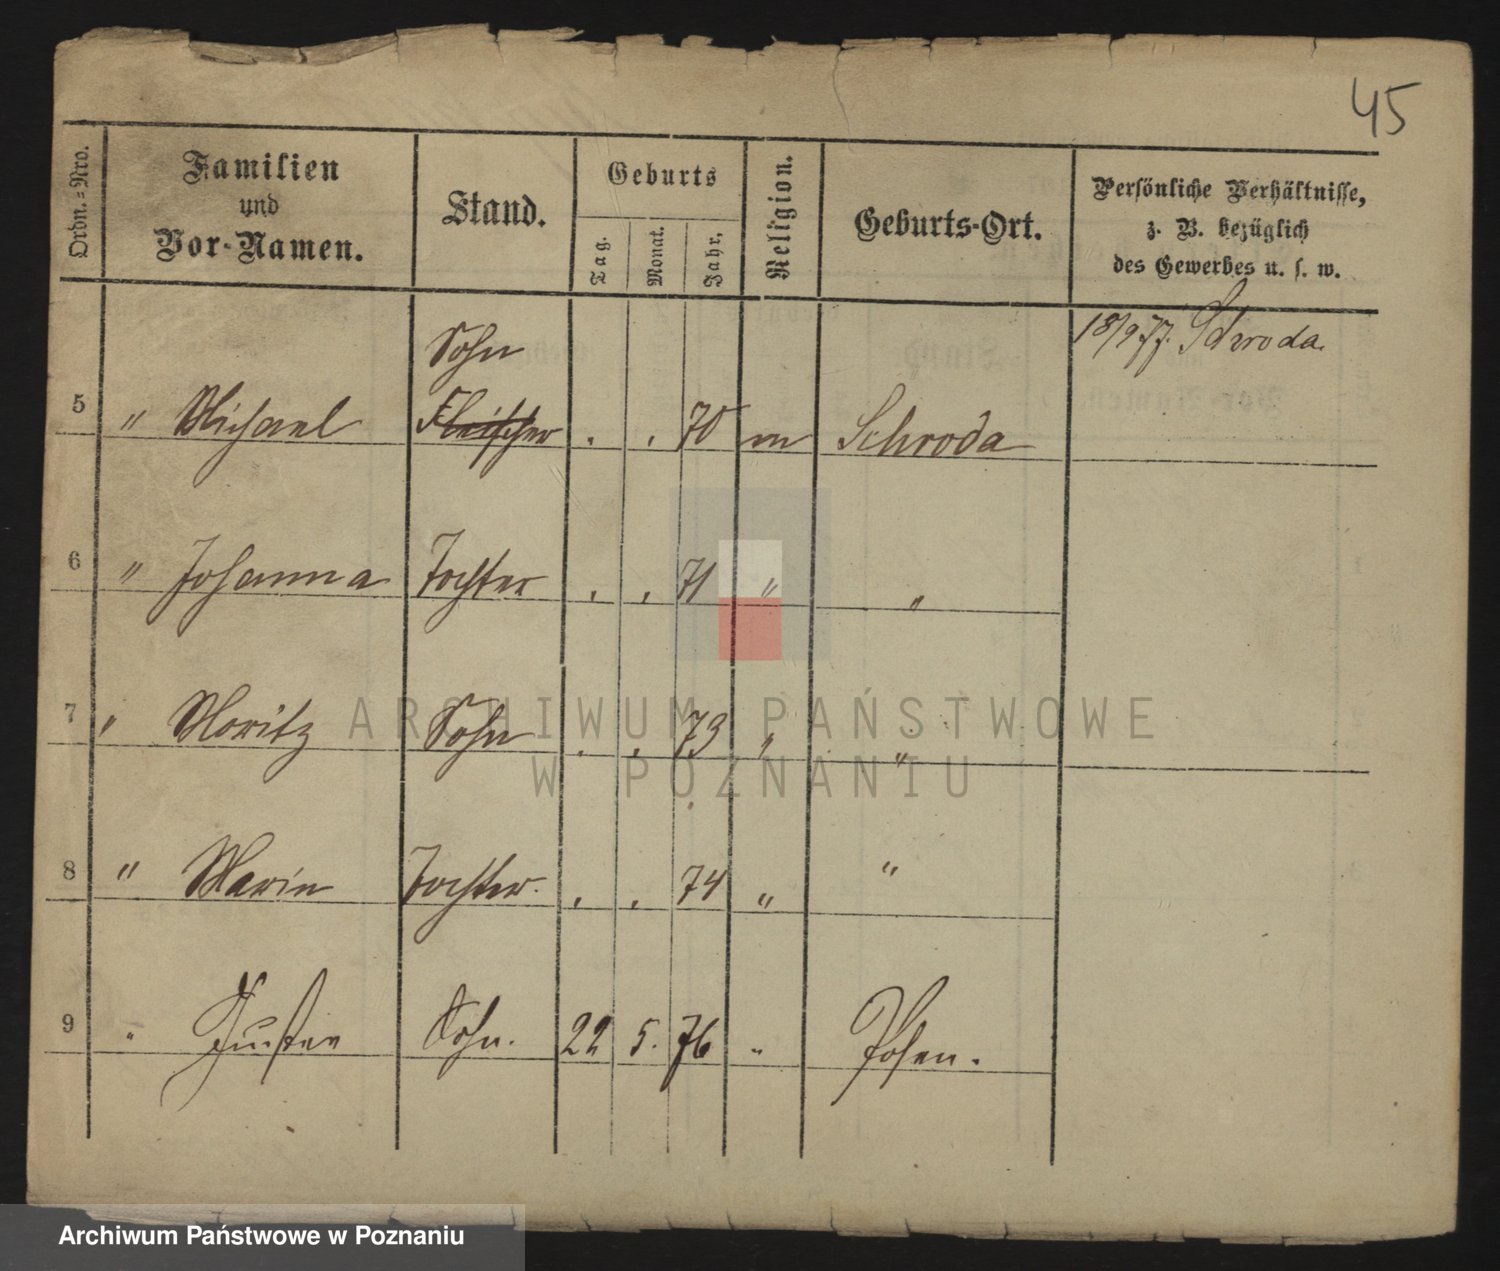 45
Ordn.-Nro.
Familien
und
Vor-Namen.
Stand.
Geburts
Tag.
Monat.
Jahr,
Religion.
Geburts-Ort.
Persönliche Verhältnisse,
z. B. bezüglich
des Gewerbes u. s. w.
18/9 77. Schroda.
Sohn
5 " Michael Fleischer . . 70 m Schroda
6 " Johanna Tochter . . 71 " "
7 " Moritz Sohn . . 73 " "
8 " Marie Tochter. . . 74 " "
9 " Sohn. 22 5. 76 " Posen.
ARCHIWUM PAŃSTWOWE
W POZNANIU
Archiwum Państwowe w Poznaniu